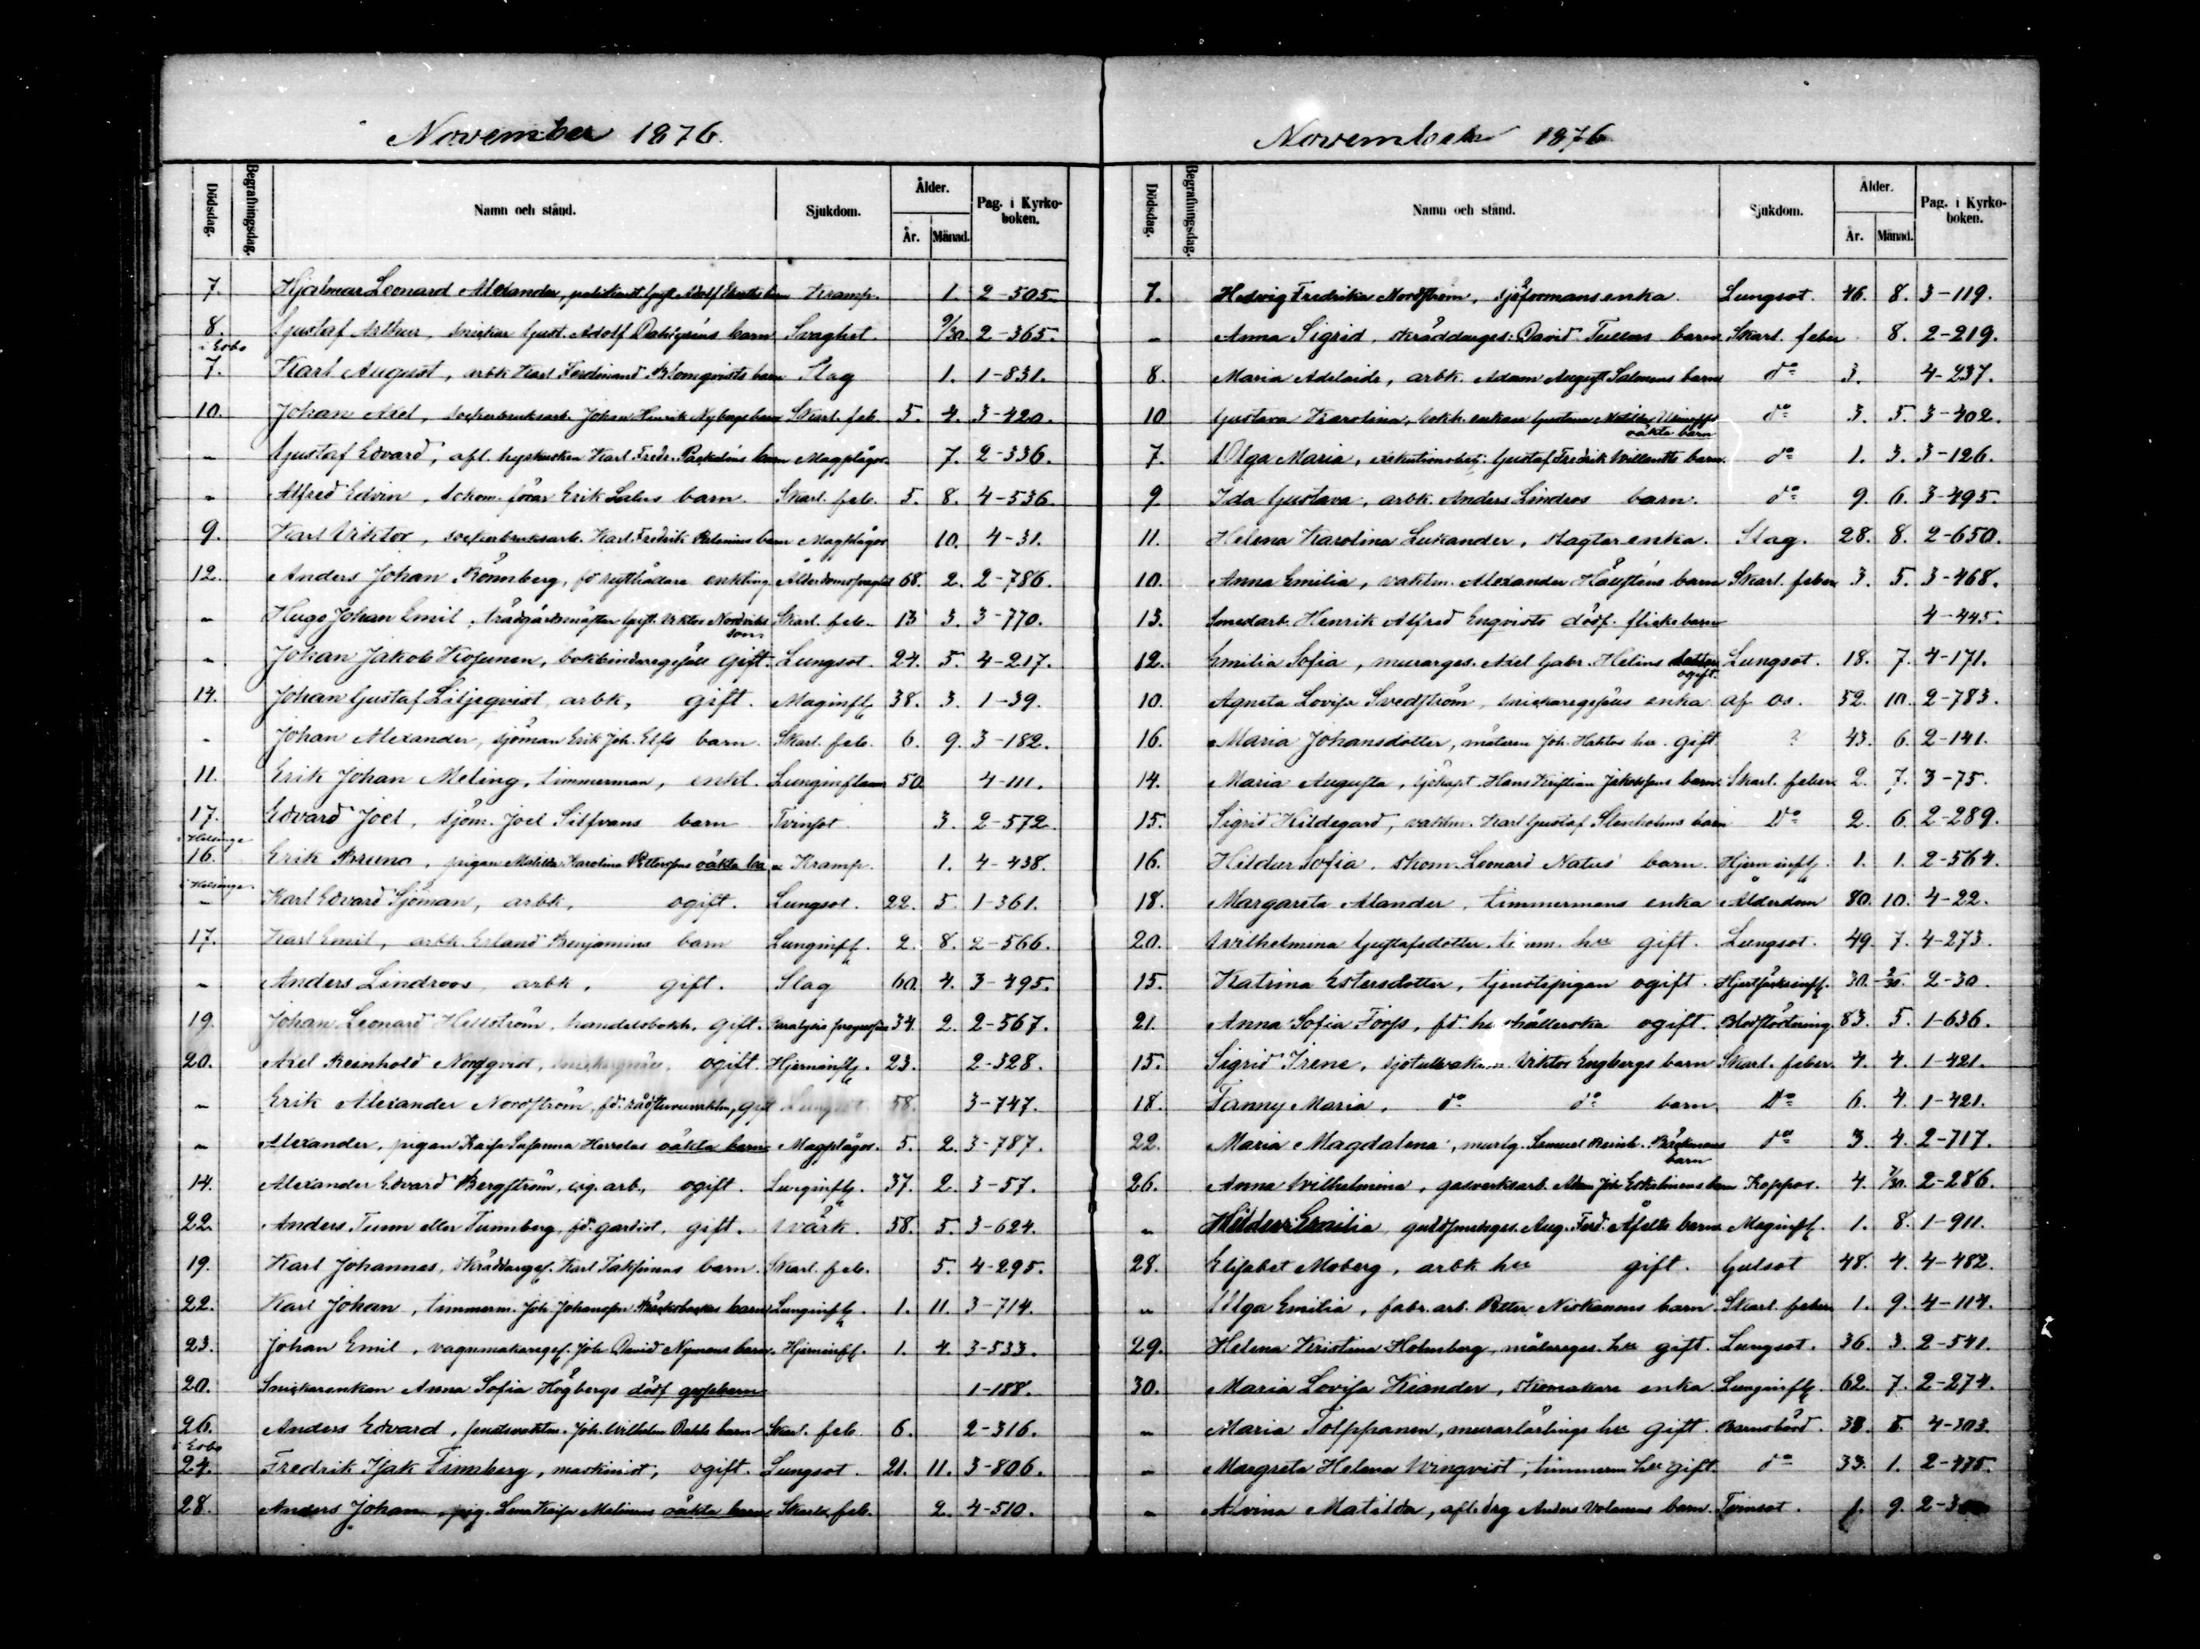 November 1876.
Dödsdag. Begrafningsdag. Namn och stånd. Sjukdom. Ålder. År. Månad. Pag. i Kyrko-boken.
7. Hjalmar Leonard Alexander, Gust. Adolf barn Kramp. 1. 2-505.
8. Gustaf Arthur, snickar Gust. Adolf barn Svaghet. 9/30 2-365.
i Esbo
7. Karl August, arbk Karl Ferdinand Blomqvists barn Slag 1. 1-831.
10. Johan Axel, sockerbruksarb. Johan Henrik Nybergs barn Skarl. feb. 5. 4. 3-420.
" Gustaf Edvard, afl. hyrkusken Karl Fredr. barn Magplågor. 7. 2-336.
" Alfred Edvin, Erik barn. Skarl. feb. 5. 8. 4-536.
9. Karl Viktor, sockerbruksarb. Karl Fredrik barn Magplågor 10. 4-31.
12. Anders Johan Rönnberg, fd enkling. Ålderdomssvaghet 68. 2. 2-786.
" Hugo Johan Emil, trädgårdsmästar Gust. Viktor Skarl. feb. 13 3. 3-770.
son
" Johan Jakob Kosunen, bokbindaregesäll gift. Lungsot. 24. 5. 4-217.
14. Johan Gustaf Liljeqvist, arbk, gift. Maginfl. 38. 3. 1-39.
" Johan Alexander, sjöman Erik Joh. Elfs barn. Skarl. feb. 6. 9. 3-182.
11. Erik Johan Meling, timmerman, enkl. Lunginflam 50. 4-111.
17. Edvard Joel, sjöm. Joel Silfvans barn Tvinsot. 3. 2-572.
i Helsinge
16. Erik Bruno, pigan Matilda Karolina oäkta barn Kramp. 1. 4-438.
i Helsinge.
" Karl Edvard Sjöman, arbk, ogift. Lungsot. 22. 5. 1-361.
17. Karl Emil, arbk. Erland Benjamins barn Lunginfl. 2. 8. 2-566.
" Anders Lindroos, arbk, gift. Slag 60. 4. 3-495.
19. Johan Leonard Hellström, handelsbokh. gift. 34. 2. 2-567.
20. Axel Reinhold Nordqvist, ogift. Hjerninfl. 23. 2-328.
" Erik Alexander Nordström, fd. gift Lungsot. 58. 3-747.
" Alexander, pigan Kajsa Susanna oäkta barn Magplågor. 5. 2. 3-787.
14. Alexander Edvard Bergström, cig. arb, ogift. Lunginfl. 37. 2. 3-57.
22. Anders Tunn eller Tunnberg, fd. gardist, gift. Wärk. 58. 5. 3-624.
19. Karl Johannes, skräddargs. Karl barn. Skarl. feb. 5. 4-295.
22. Karl Johan, timmerm. Joh. Johansson barn Lunginfl. 1. 11. 3-714.
23. Johan Emil, vagnmakaregs. Joh. David Nymans barn. Hjerninfl. 1. 4. 3-533.
20. Snickarenkan Anna Sofia Högbergs dödf. gossebarn 1-188.
26. Anders Edvard, Joh. Wilhelm Dahls barn Skarl. feb. 6. 2-316.
i Esbo
24. Fredrik Isak Finnberg, maskinist, ogift. Lungsot. 21. 11. 3-806.
28. Anders Johan, pig. Lena Kajsa Malmens oäkta barn Skarla. feb. 2. 4-510.
November 1876.
Dödsdag. Begrafningsdag. Namn och stånd. Sjukdom. Ålder. År. Månad. Pag. i Kyrko-boken.
7. Hedvig Fredrika Nordström, sjöformansenka. Lungsot. 46. 8. 3-119.
" Anna Sigrid, skräddarges: David barn Skarl. feber 8. 2-219.
8. Maria Adelaide, arbk. Adam August Salmens barn do 3. 4-237.
10 Gustava Karolina, enkan Gustava do 3. 5. 3-402.
oäkta barn
7. Olga Maria, exekutionsbetj: Gustaf Fredrik barn. do 1. 3. 3-126.
9 Ida Gustava, arbk. Anders Lindros barn. do 9. 6. 3-495.
11. Helena Karolina Lukander, slagtar enka. Slag. 28. 8. 2-650.
10. Anna Emilia, vaktm. Alexander barn Skarl. feber 3. 5. 3-468.
13. Smedarb. Henrik Alfred Enqvists dödf. flickebarn 4-445.
12. Emilia Sofia, murarges. Axel Gabr. Helins dotter Lungsot. 18. 7. 4-171.
ogift.
10. Agneta Lovisa Svedström, snickaregesälls enka af os. 52. 10. 2-783.
16. Maria Johansdotter, målaren Joh. hu. gift ? 43. 6. 2-141.
14. Maria Augusta, sjökapt. Hans Kristian Jakobsens barn. Skarl. feber 2. 7. 3-75.
15. Sigrid Hildegard, vaktm. Karl Gustaf Stenholms barn Do 2. 6. 2-289.
16. Hildur Sofia, skom. Leonard Natus' barn. Hjerninfl. 1. 1. 2-564.
18. Margareta Alander, timmermans enka Ålderdom 80. 10. 4-22.
20. Wilhelmina Gustafsdotter, timm. hu gift. Lungsot. 49. 7. 4-273.
15. Katrina Estersdotter, tjenstepigan ogift. 30. 2/30. 2-30.
21. Anna Sofia Foofs, fd. hushållerska ogift. Blodstörtning. 83. 5. 1-636.
15. Sigrid Irene, sjötullvaktm. Viktor Engbergs barn Skarl. feber. 4. 4. 1-421.
18. Fanny Maria, do do barn. Do 6. 4. 1-421.
22. Maria Magdalena, murlg. Samuel Reinh. Bäckmans do 3. 4. 2-717.
barn
26. Anna Wilhelmina, gasverksarb. Adam Joh. Eskelinens barn Koppor. 4. 7/30. 2-286.
" Hildur Emilia, guldsmedsges. Aug. Ferd. barn Maginfl. 1. 8. 1-911.
28. Elisabet Moberg, arbk hu gift. Gulsot 48. 4. 4-482.
" Olga Emilia, fabr. arb. Petter Niskanens barn Skarl. feber 1. 9. 4-114.
29. Helena Kristina Holmberg, målareges. hu gift. Lungsot. 36. 3. 2-541.
30. Maria Lovisa Kiander, skomakare enka Lunginfl. 62. 7. 2-274.
" Maria Tolppanen, murarlärlings hu gift. Barnsbörd. 38. 8. 4-303.
" Margreta Helena Winqvist, timmerm hu gift. do 33. 1. 2-475.
" Alvina Matilda, afl. drg Anders Volanens barn. Tvinsot. 1. 9. 2-3